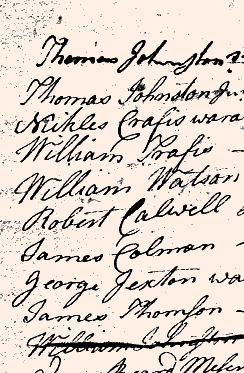 Thomas Johnston
Thomas Johnston Jur
Nickles Crafis wara
William Trafis -
William Watson
Robert Calwell
James Colman -
George Jexton wa
James Thomson -
William Johnston
Beard